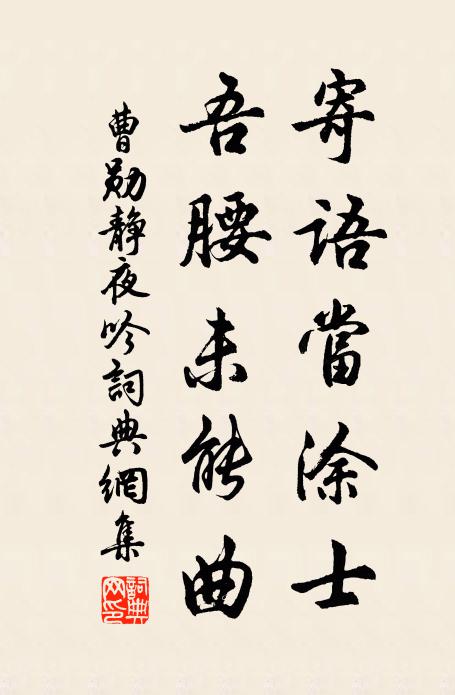 寄語當涂士
吾腰未能曲
曹勛静夜吟詞典網集
詞典网印